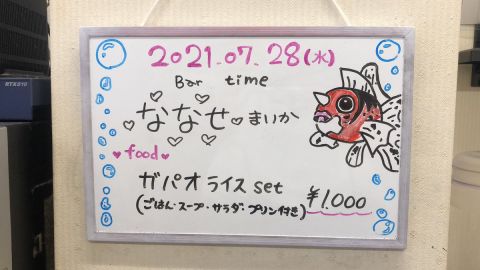 2021.07.28(水)
Bar time
ななせ まいか
food
ガパオライスset
¥1.000
(ごはん・スープ・サラダ・プリン付き)
RTX810